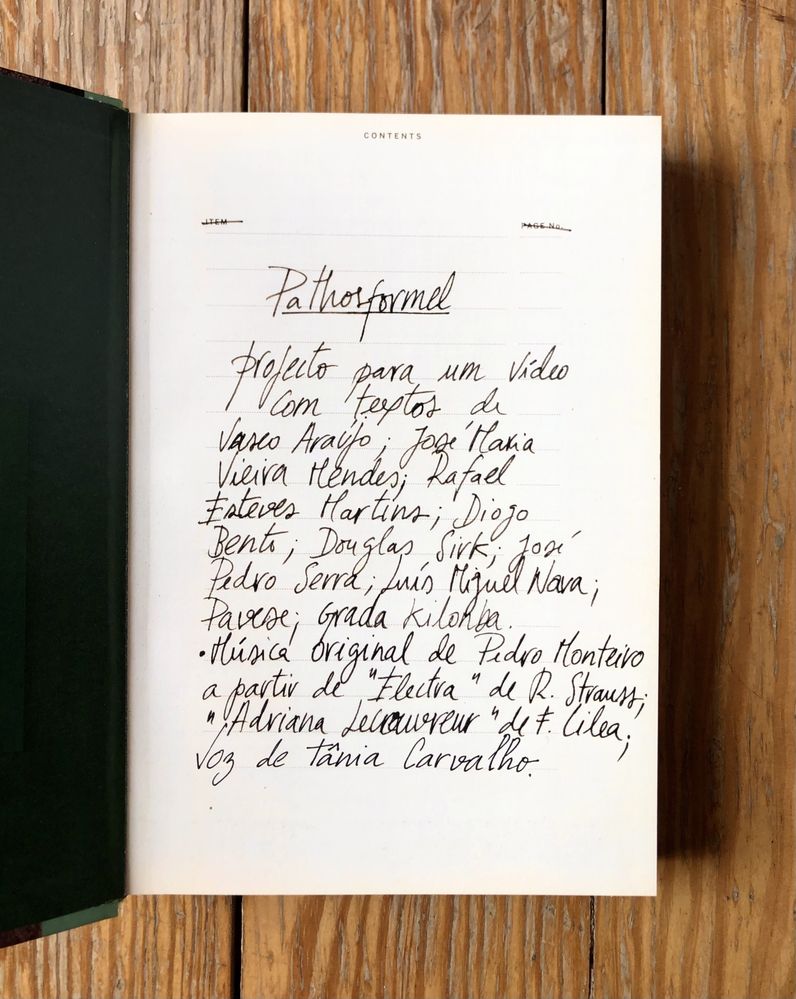 CONTENTS
ITEM PAGE No.
Pathosformel
projecto para um vídeo
com textos de
Vasco Araújo; José Maria
Vieira Mendes; Rafael
Esteves Martins; Diogo
Bento; Douglas Sirk; José
Pedro Serra; Luís Miguel Nava;
Pavese; Grada Kilomba.
• Música original de Pedro Monteiro
a partir de "Electra" de R. Strauss;
"Adriana Lecouvreur" de F. Cilea;
voz de Tânia Carvalho.